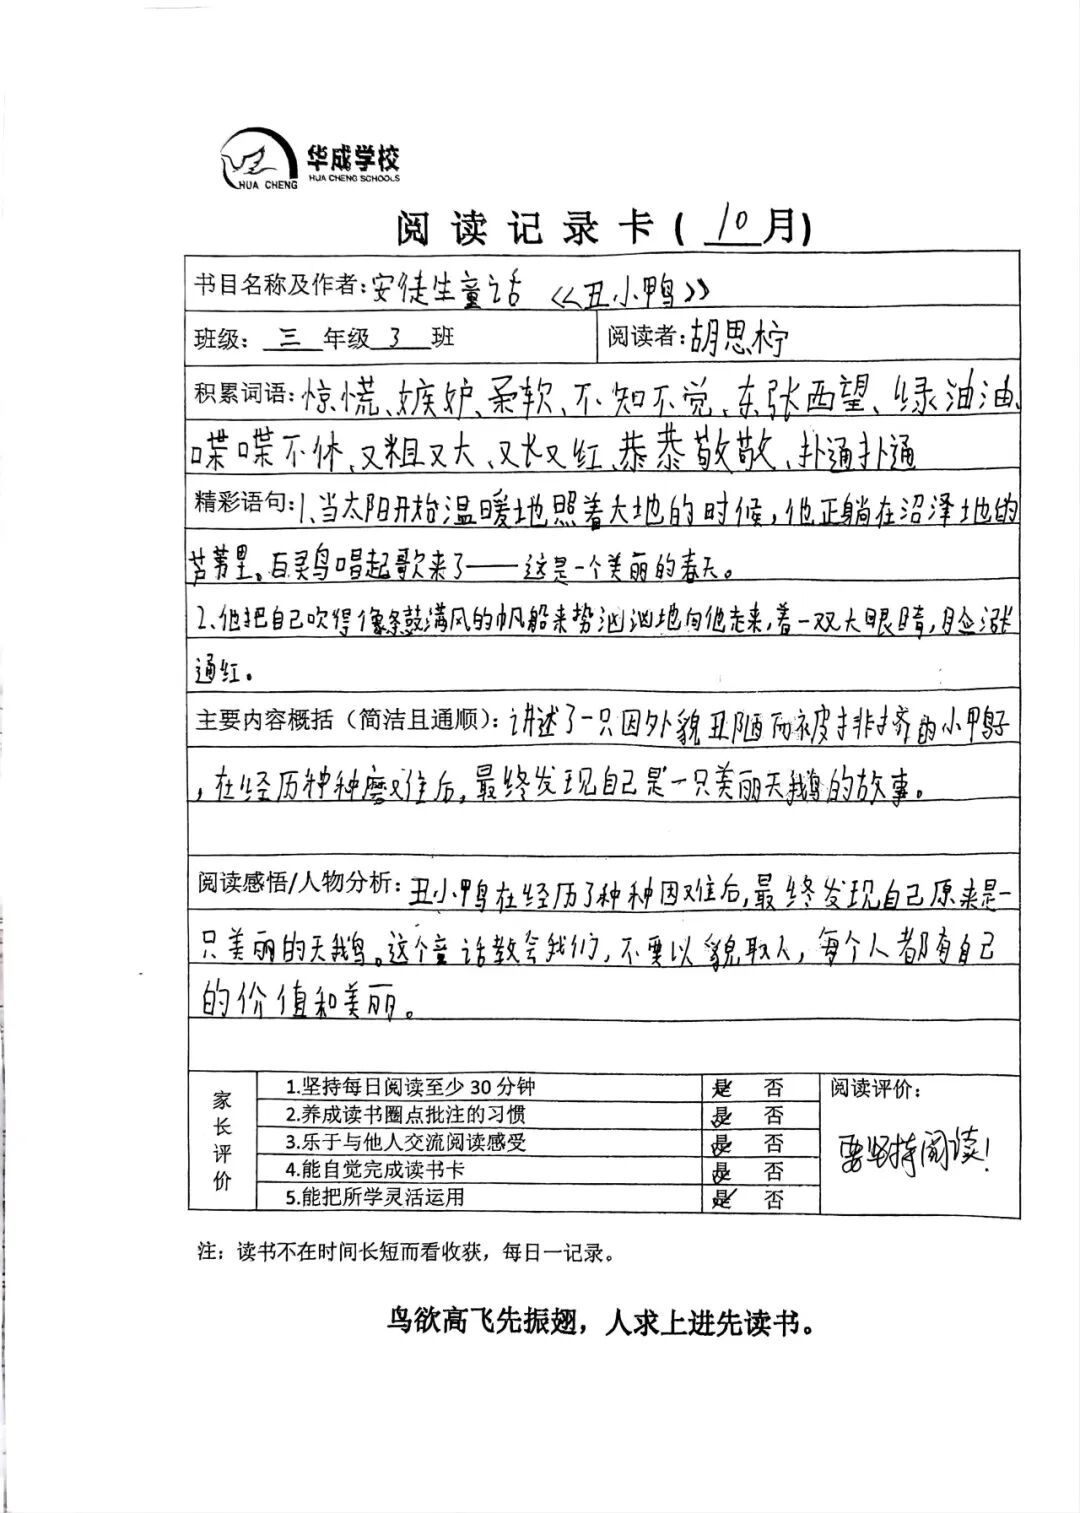 华成学校
HUA CHENG SCHOOLS
HUA CHENG
阅读记录卡(10月)
书目名称及作者:安徒生童话《丑小鸭》
班级:三年级3班 阅读者:胡思柠
积累词语:惊慌、嫉妒、柔软、不知不觉、东张西望、绿油油、
喋喋不休、又粗又大、又长又红、恭恭敬敬、扑通扑通
精彩语句:1、当太阳开始温暖地照着大地的时候,他正躺在沼泽地的
芦苇里。百灵鸟唱起歌来了——这是一个美丽的春天。
2、他把自己吹得像条鼓满风的帆船来势汹汹地向他走来,着一双大眼睛,脸涨
通红。
主要内容概括(简洁且通顺):讲述了一只因外貌丑陋而被排挤的小鸭子
,在经历种种磨难后,最终发现自己是一只美丽天鹅的故事。
阅读感悟/人物分析:丑小鸭在经历了种种困难后,最终发现自己原来是一
只美丽的天鹅。这个童话教会我们,不要以貌取人,每个人都有自己
的价值和美丽。
家长评价
1.坚持每日阅读至少30分钟 是 否
2.养成读书圈点批注的习惯 是 否
3.乐于与他人交流阅读感受 是 否
4.能自觉完成读书卡 是 否
5.能把所学灵活运用 是 否
阅读评价:
要坚持阅读!
注:读书不在时间长短而看收获,每日一记录。
鸟欲高飞先振翅,人求上进先读书。